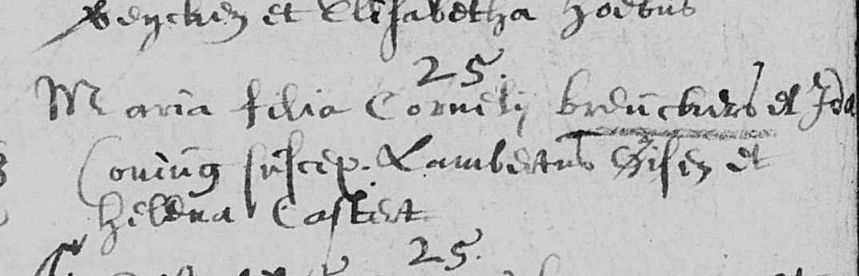 et Elisabetha Hoebus
25.
Maria filia Cornelij Breuckers et Ida
Coning suscep. Lambertus Gisen et
Helena Castert
25.